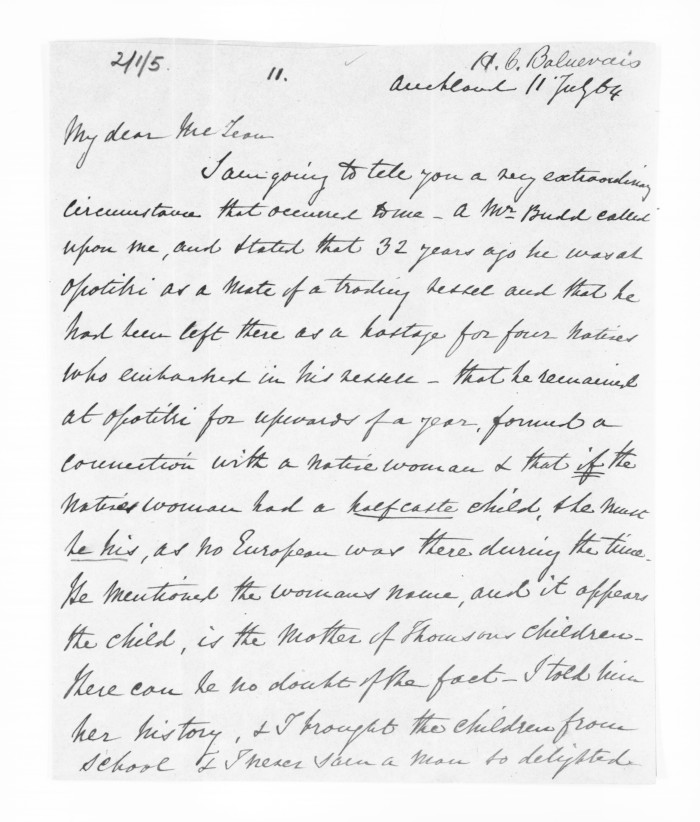 2/1/5.
11.
H. C. Balneavis
Auckland 11 July 64
My dear McLean
I am going to tell you a very extraordinary
circumstance that occurred to me - A Mr. Budd called
upon me, and stated that 32 years ago he was at
Opotiki as a Mate of a trading vessel and that he
had been left there as a hostage for four Natives
who embarked in his vessel - that he remained
at Opotiki for upwards of a year, formed a
connection with a native woman & that if the
natives woman had a halfcaste child, she must
be his, as no European was there during the time -
He mentioned the womans name, and it appears
the child, is the Mother of Thomsons children -
There can be no doubt of the fact - I told him
her history, & I brought the children from
school & I never saw a man so delighted